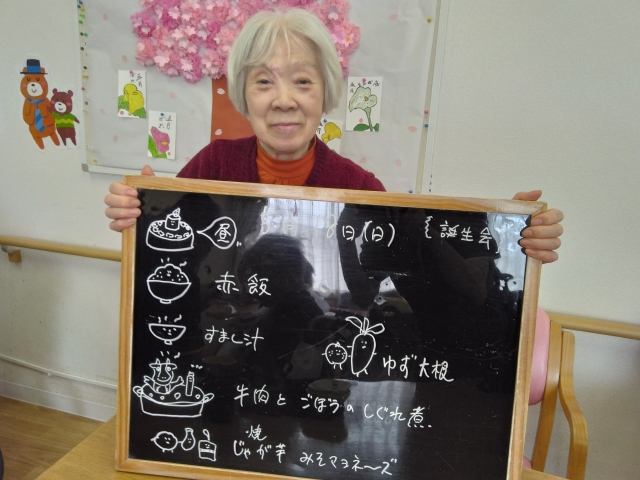 昼 8日(日) {誕生会
赤飯
すまし汁
ゆず大根
牛肉と ごぼうの しぐれ煮
焼
じゃが芋 みそマヨネーズ